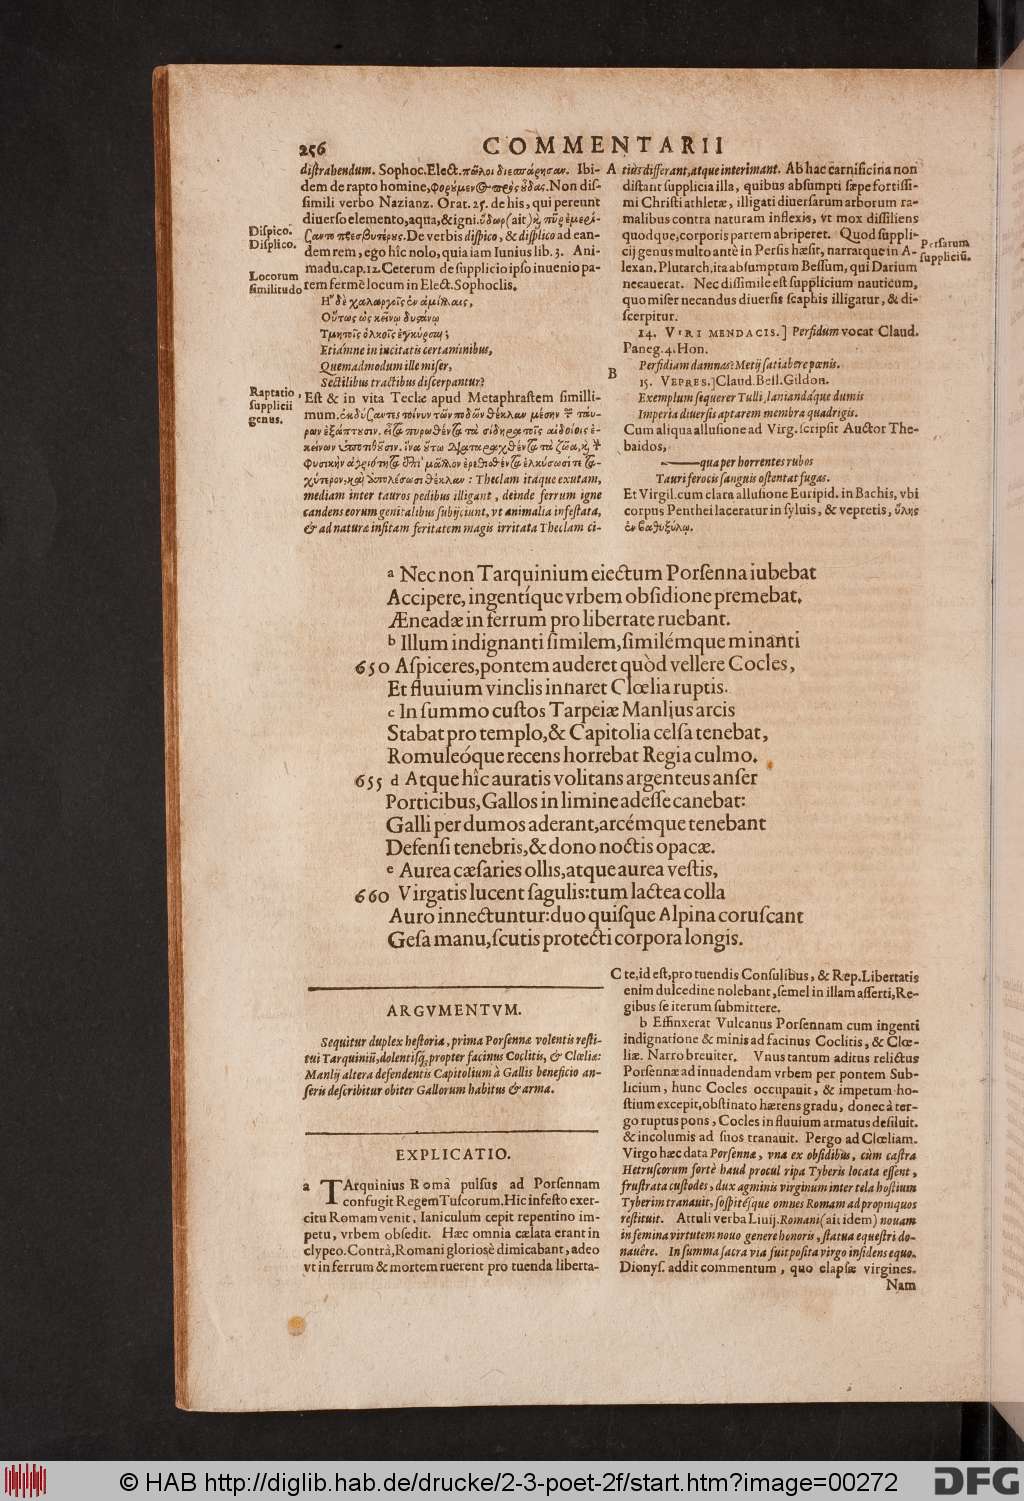 256 COMMENTARII
distrahendum. Sophoc. Elect. πῶλοι διεσπάρησαν. Ibi-
dem de rapto homine, φορούμενος πρὸς οὖδας. Non dis-
simili verbo Nazianz. Orat. 25. de his, qui pereunt
diuerso elemento, aqua, & igni. ὕδωρ (ait) ἢ πῦρ ἐμερί-
ζαντο πρεσβυτέρους. De verbis dispico, & displico ad ean-
dem rem, ego hîc nolo, quia iam Iunius lib. 3. Ani-
madu. cap. 12. Ceterum de supplicio ipso inuenio pa-
rem fermè locum in Elect. Sophoclis.
Dispico.
Displico.
Locorum
similitudo
Ἦ δὲ χαλαργοῖς ἐν ἁμίλλαις,
Οὕτως ὡς κείνῳ δυστάνῳ
Τμητοῖς ὁλκοῖς ἐγκύρσαι;
Etiámne in incitatis certaminibus,
Quemadmodum ille miser,
Sectilibus tractibus discerpantur?
Est & in vita Teclæ apud Metaphrastem simillimum.
Raptatio,
supplicii
genus.
ἐκδύσαντες τοίνυν τῶν ποδῶν θέκλαν μέσην τ̃ ταύ-
ρων ἐξάπτουσιν.
Theclam itaque exutam,
mediam inter tauros pedibus illigant, deinde ferrum igne
candens eorum genitalibus subijciunt, vt animalia infestata,
& ad naturæ insitam feritatem magis irritata Theclam ci-
A tiùs differant, atque interimant. Ab hac carnificina non
distant supplicia illa, quibus absumpti sæpe fortissi-
mi Christi athletæ, illigati diuersarum arborum ra-
malibus contra naturam inflexis, vt mox dissiliens
quodque, corporis partem abriperet. Quod suppli-
cij genus multo antè in Persis hæsit, narratque in A-
lexan. Plutarch. ita absumptum Bessum, qui Darium
necauerat. Nec dissimile est supplicium nauticum,
quo miser necandus diuersis scaphis illigatur, & di-
scerpitur.
Persarum
suppliciũ.
14. VIRI MENDACIS.] Perfidum vocat Claud.
Paneg. 4. Hon.
Perfidiam damnas? Metij satiabere pœnis.
B
15. VEPRES.] Claud. Bell. Gildon.
Exemplum sequerer Tulli, laniandáque dumis
Imperia diuersis aptarem membra quadrigis.
Cum aliqua allusione ad Virg. scripsit Auctor The-
baidos,
— qua per horrentes rubos
Tauri ferocis sanguis ostentat fugas.
Et Virgil. cum clara allusione Euripid. in Bachis, vbi
corpus Penthei laceratur in syluis, & vepretis, ὕλης
ἐν βαθυξύλῳ.
a Nec non Tarquinium eiectum Porsenna iubebat
Accipere, ingentíque vrbem obsidione premebat.
Æneadæ in ferrum pro libertate ruebant.
b Illum indignanti similem, similémque minanti
650 Aspiceres, pontem auderet quòd vellere Cocles,
Et fluuium vinclis innaret Clœlia ruptis.
c In summo custos Tarpeiæ Manlius arcis
Stabat pro templo, & Capitolia celsa tenebat,
Romuleóque recens horrebat Regia culmo.
655 d Atque hîc auratis volitans argenteus anser
Porticibus, Gallos in limine adesse canebat:
Galli per dumos aderant, arcémque tenebant
Defensi tenebris, & dono noctis opacæ.
e Aurea cæsaries ollis, atque aurea vestis,
660 Virgatis lucent sagulis: tum lactea colla
Auro innectuntur: duo quisque Alpina coruscant
Gesa manu, scutis protecti corpora longis.
ARGVMENTVM.
Sequitur duplex historia, prima Porsennæ volentis resti-
tui Tarquiniũ, dolentisq́; propter facinus Coclitis, & Clœliæ:
Manlij altera defendentis Capitolium à Gallis beneficio an-
seris describitur obiter Gallorum habitus & arma.
EXPLICATIO.
a TArquinius Româ pulsus ad Porsennam
confugit Regem Tuscorum. Hic infesto exer-
citu Romam venit, Ianiculum cepit repentino im-
petu, vrbem obsedit. Hæc omnia cælata erant in
clypeo. Contrà, Romani gloriosè dimicabant, adeo
vt in ferrum & mortem ruerent pro tuenda liberta-
C te, id est, pro tuendis Consulibus, & Rep. Libertatis
enim dulcedine nolebant, semel in illam asserti, Re-
gibus se iterum submittere.
b Effinxerat Vulcanus Porsennam cum ingenti
indignatione & minis ad facinus Coclitis, & Clœ-
liæ. Narro breuiter. Vnus tantum aditus relictus
Porsennæ ad inuadendam vrbem per pontem Sub-
licium, hunc Cocles occupauit, & impetum ho-
stium excepit, obstinato hærens gradu, donec à ter-
go ruptus pons, Cocles in fluuium armatus desiluit,
& incolumis ad suos tranauit. Pergo ad Clœliam.
Virgo hæc data Porsennæ, vna ex obsidibus, cùm castra
Hetruscorum fortè haud procul ripa Tyberis locata essent,
frustrata custodes, dux agminis virginum inter tela hostium
Tyberim tranauit, sospitésque omnes Romam ad propinquos
restituit. Attuli verba Liuij. Romani (ait idem) nouam
in femina virtutem nouo genere honoris, statua equestri do-
nauêre. In summa sacra via fuit posita virgo insidens equo.
Dionys. addit commentum, quo elapsæ virgines.
Nam
© HAB http://diglib.hab.de/drucke/2-3-poet-2f/start.htm?image=00272
DFG